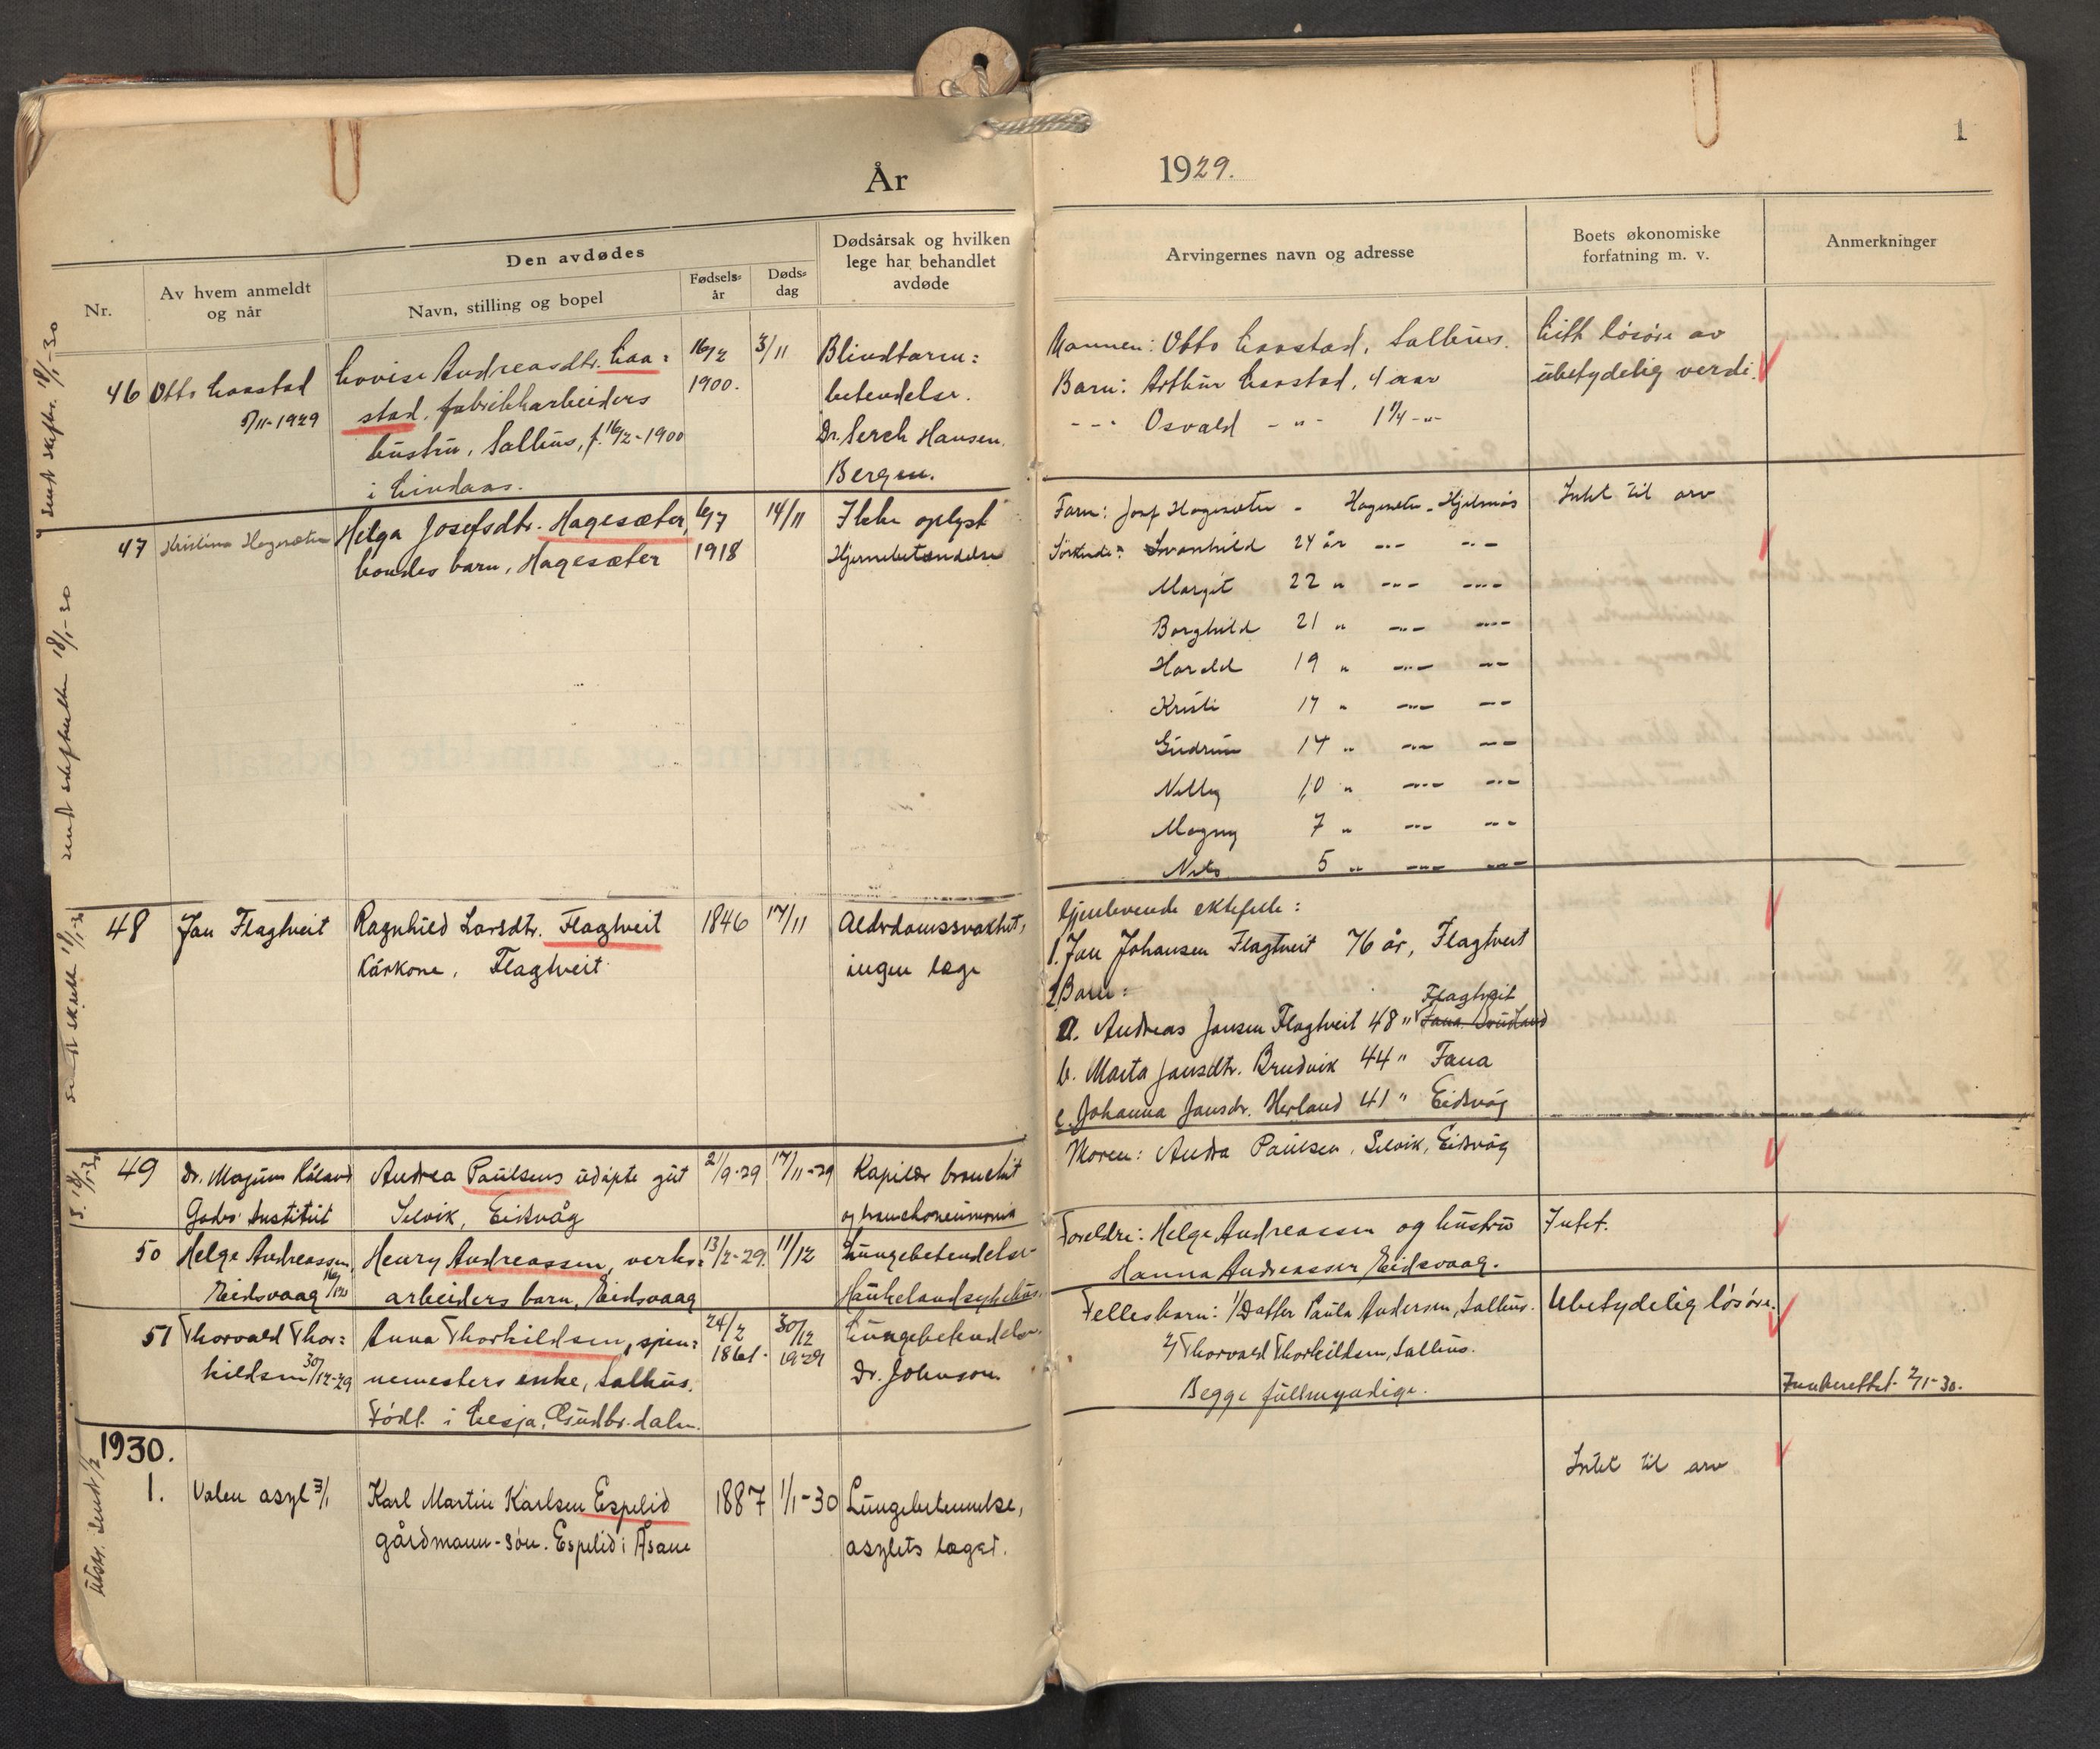 År 1929.
1
Nr.
Av hvem anmeldt
og når
Den avdødes
Navn, stilling og bopel
Fødsels-
år
Døds-
dag
Dødsårsak og hvilken
lege har behandlet
avdøde
Arvingernes navn og adresse
Boets økonomiske
forfatning m. v.
Anmerkninger
sendt skiftr. 18/1-30
46 Otto Laastad
5/11-1929
Lovise Andreasdtr. Laa=
stad, fabrikkarbeiders
hustru, Salhus, f. 16/2-1900
i Lindaas.
16/2
1900.
3/11
Blindtarm=
betendelse.
Dr. Hansen.
Bergen.
Mannen: Otto Laastad, Salhus.
Barn: Arthur Laastad, 4 aar
--- Osvald -"- 1 1/4 -"-
Litt løsøre av
ubetydelig verdi.
sendt skifteretten 18/1-30
47 Kristina Hagesæter
Helga Josefsdtr. Hagesæter,
bondes barn, Hagesæter
6/7
1918
14/11
Ikke oplyst
Hjernebetændelse
Farn: Josef Hagesæter - Hagesæter - Hjelmås
Søskende: Svanhild 24 år -"- -"-
Margit 22 " -"- -"-
Borghild 21 " -"- -"-
Harald 19 " -"- -"-
Kristi 17 " -"- -"-
Gudrun 14 " -"- -"-
Nelly 10 " -"- -"-
Magny 7 " -"- -"-
Nils 5 " -"- -"-
Intet til arv
18/1-30
48 Jan Flagtveit
Ragnhild Larsdtr. Flagtveit
Kårkone, Flagtveit
1846
17/11
Alderdomssvakhet,
ingen læge
Gjenlevende ektefelle:
1. Jan Johansen Flagtveit 76 år, Flagtveit
2 Barn:
Flagtveit
a. Andreas Jansen Flagtveit 48 " Fana
b. Marta Jansdtr. Brudvik 44 " Fana
c. Johanna Jansdr. Herland 41 " Eidsvåg
S. 18/1-30
49 Dr. Magnus Håland
Gades Institut
Andrea Paulsens udøpte gut
Selvik, Eidsvåg
2/9-29
17/11-29
Kapilær bronchit
og bronchoneumonia
Moren: Andrea Paulsen, Selvik, Eidsvåg
50 Helge Andreassen,
Eidsvaag 16/12
Henry Andreassen, verks=
arbeiders barn, Eidsvaag
13/2-29.
11/12
Lungebetendelse
Haukelandsykehus.
Foreldre: Helge Andreassen og hustru
Hanna Andreassen Eidsvaag.
Intet.
51 Thorvald Thor=
kildsen 30/12-29
Anna Thorkildsen, spin=
nemesters enke, Salhus.
Født i Lesja, Gudbr.dalen.
24/2
1861.
30/12
1929
Lungebetendelse.
Dr. Johnson.
Fellesbarn: 1/ Datter Paula Andersen, Salhus.
2/ Thorvald Thorkildsen, Salhus.
Begge fullmyndige.
Ubetydelig løsøre.
Innberettet 2/1-30.
1930.
1. Valen asyl 3/1
Karl Martin Karlsen Espelid
gårdmann-søn. Espelid i Åsane
1887
1/1-30
Lungebetennelse,
asylets læge.
Intet til arv